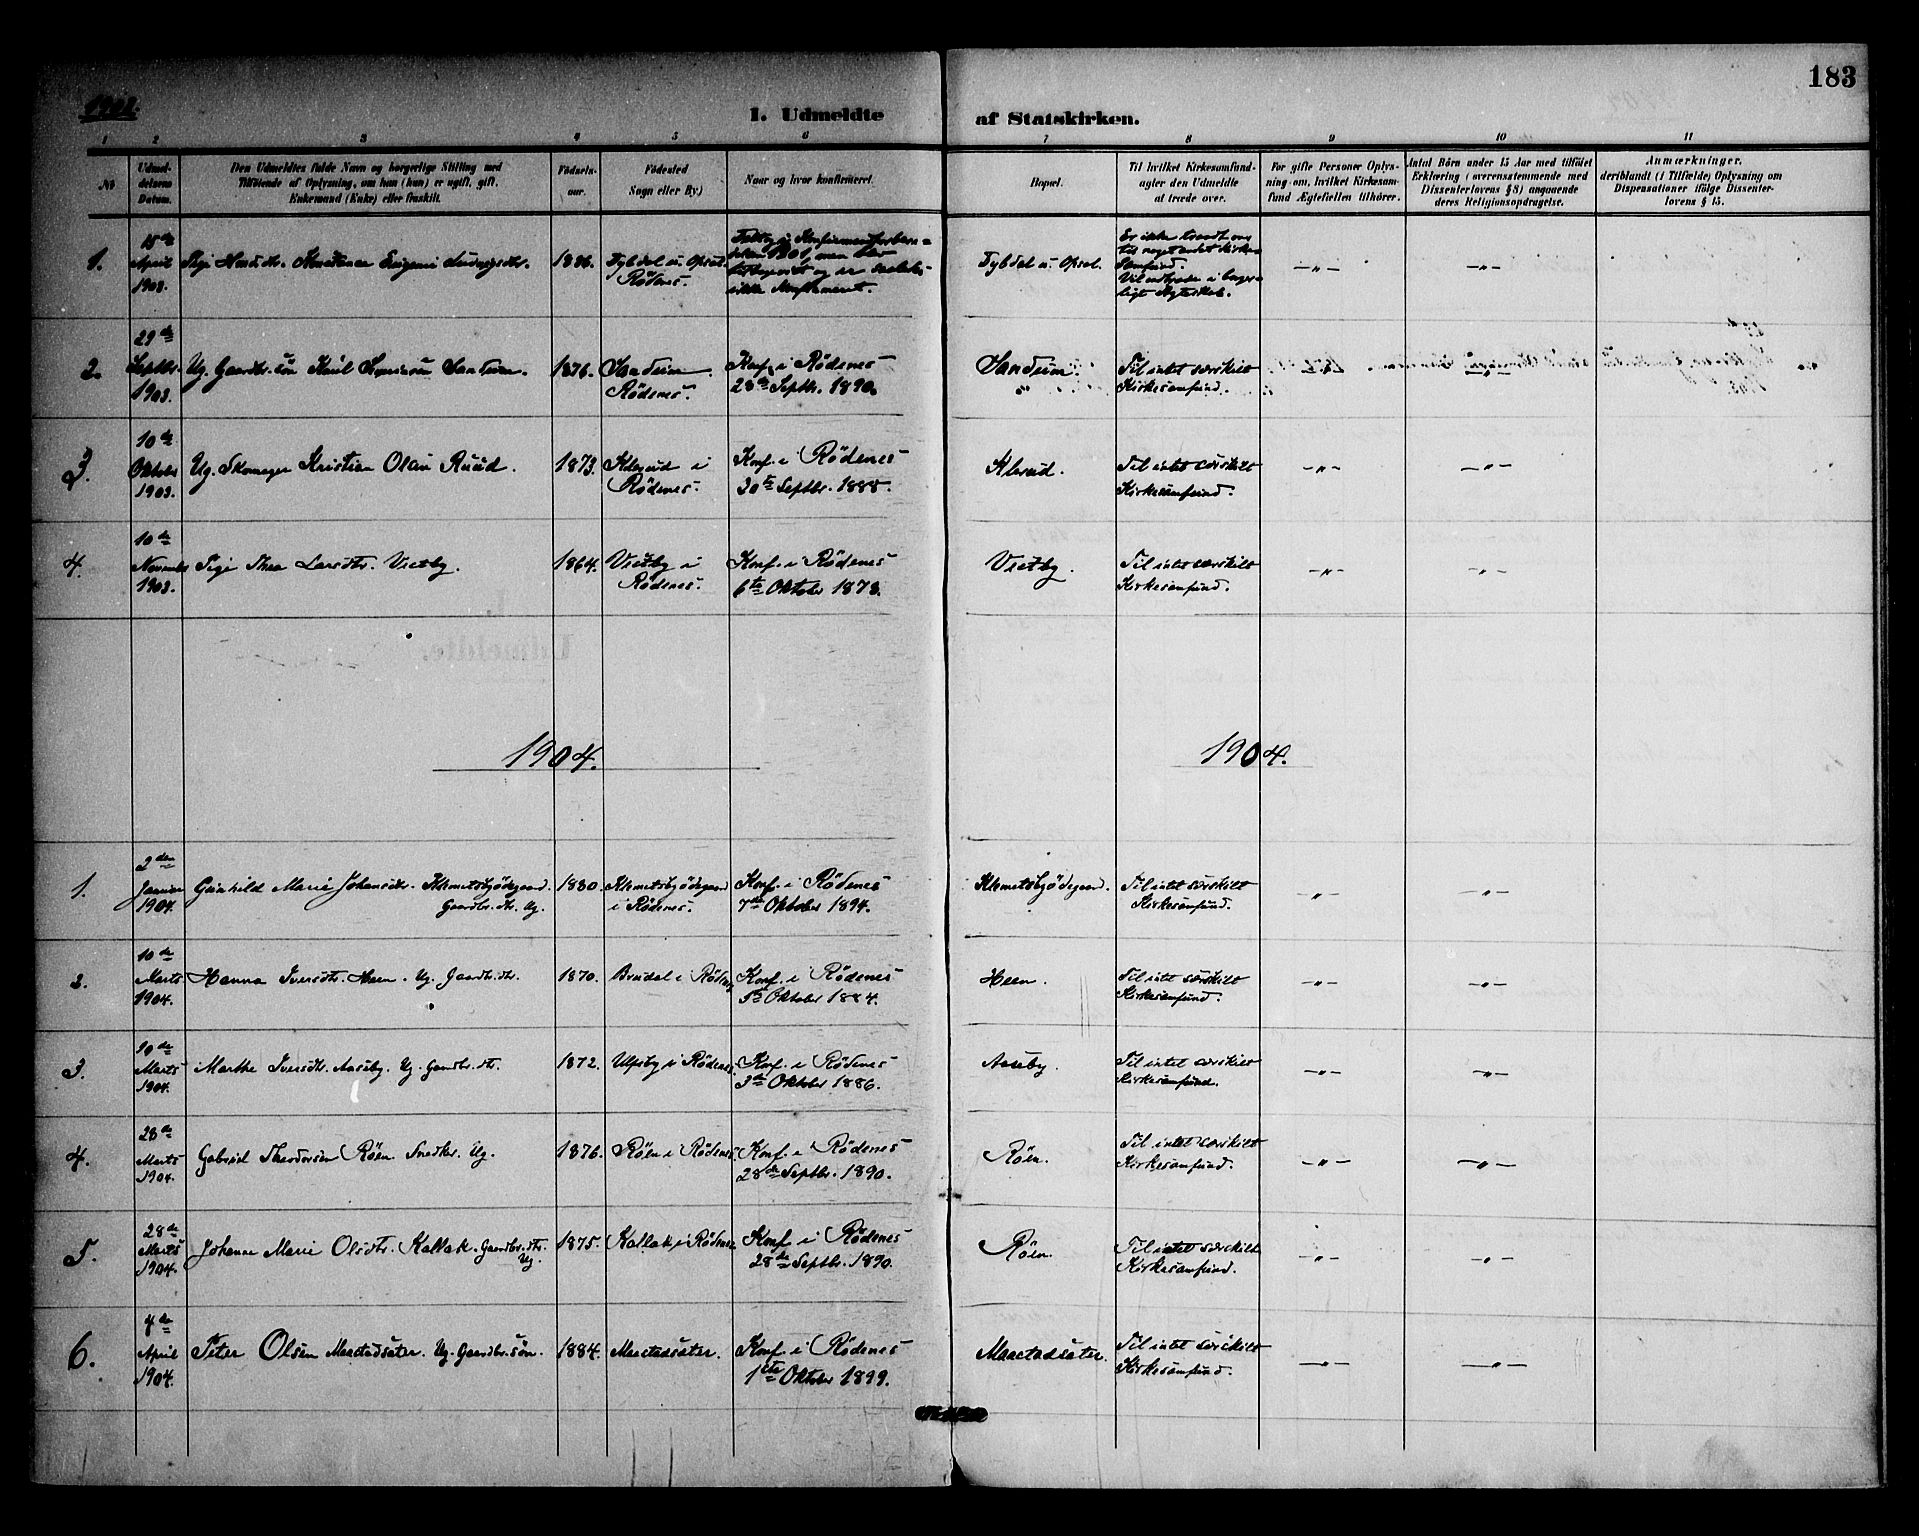 183
1903.
1. Udmeldte af Statskirken.
1 2 3 4 5 6 7 8 9 10 11
No
Udmeldelsens Datum.
Den Udmeldtes fulde Navn og borgerlige Stilling med
Tilföiende af Oplysning, om han (hun) er ugift, gift,
Enkemand (Enke) eller fraskilt.
Födselsaar.
Födested
Sogn eller By)
Naar og hvor konfirmeret.
Bopæl.
Til hvilket Kirkesamfund
agter den Udmeldte
at træde over.
For gifte Personer Oplys-
ning om, hvilket Kirkesam-
fund Ægtefællen tilhører.
Antal Börn under 15 Aar med tilföiet
Erklæring (overensstemmende med
Dissenterlovens § 8) angaaende
deres Religionsopdragelse.
Anmærkninger,
deriblandt (i Tilfælde) Oplysning om
Dispensationer ifölge Dissenter-
lovens § 15.
1.
15de
April
1903.
Pige Konstance Eugenie Ludvigsdtr.
1886.
Tybdel u. Opsal.
Rödenes.
Deltog i Konfirmantforbere-
delsen 1901, men blev
og er saaledes
ikke Konfirmeret.
Tybdel u. Opsal.
Er ikke traadt over
til noget andet Kirke-
samfund.
Vil indtræde i borger-
ligt Ægteskab.
—"—
—"—
2.
29de
Septbr.
1903.
Ug. Gaardbr. sön Sandem.
1876.
Sandem
Rödenes.
Konf. i Rödenes
28de Septbr. 1890.
Sandem
Til intet særskilt
Kirkesamfund.
—"—
3.
10de
Oktober
1903.
Ug. Skomager Kristian Olav Ruud.
1873.
i
Rödenes.
Konf. i Rödenes
30te Septbr. 1888.
Til intet særskilt
Kirkesamfund.
—"—
—"—
4.
10de
November
1903.
Pige Thea Larsdtr. Vestby.
1864.
Vestby i
Rödenes.
Konf. i Rödenes
6te Oktober 1878.
Vestby.
Til intet særskilt
Kirkesamfund.
—"—
—"—
1904. 1904.
1.
2den
Januar
1904.
Gunhild Marie Johansdtr. Klemetsbyödegaard.
Gaardbr. dtr. Ug.
1880.
Klemetsbyödegaard
i Rödenes.
Konf. i Rödenes
7de Oktober 1894.
Klemetsbyödegaard.
Til intet særskilt
Kirkesamfund.
—"—
—"—
2.
10de
Marts
1904.
Hanna Iversdtr. Heen. Ug. Gaardbr. dtr.
1870.
Brudal i Rödenes
Konf. i Rödenes
5te Oktober 1884.
Heen.
Til intet særskilt
Kirkesamfund.
—"—
—"—
3.
10de
Marts
1904.
Marthe Iversdtr. Aaseby. Ug. Gaardbr. dtr.
1872.
Ulfsby i Rödenes.
Konf. i Rödenes
3die Oktober 1886.
Aaseby.
Til intet særskilt
Kirkesamfund.
—"—
—"—
4.
28de
Marts
1904.
Gabriel Theodorsen Röen. Snedker. Ug.
1876.
Röen i Rödenes.
Konf. i Rödenes
28de Septbr. 1890.
Röen.
Til intet særskilt
Kirkesamfund.
—"—
—"—
5.
28de
Marts
1904.
Johanne Marie Olsdtr. Kallak. Gaardbr. dtr.
Ug.
1875.
Kallak i Rödenes
Konf. i Rödenes
28de Septbr. 1890.
Röen.
Til intet særskilt
Kirkesamfund.
—"—
—"—
6.
4de
April
1904.
Peter Olsen Maastadsæter. Ug. Gaardbr. sön.
1884.
Maastadsæter.
Konf. i Rödenes
1ste Oktober 1899.
Maastadsæter.
Til intet særskilt
Kirkesamfund.
—"—
—"—